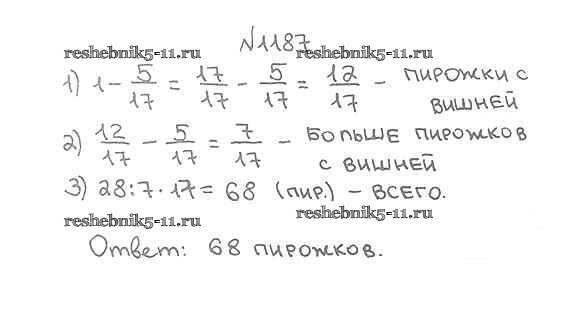 №1187
reshebnik5-11.ru reshebnik5-11.ru
1) 1 - 5/17 = 17/17 - 5/17 = 12/17 - пирожки с
вишней
2) 12/17 - 5/17 = 7/17 - больше пирожков
с вишней
3) 28:7·17 = 68 (пир.) - всего.
reshebnik5-11.ru reshebnik5-11.ru
Ответ: 68 пирожков.